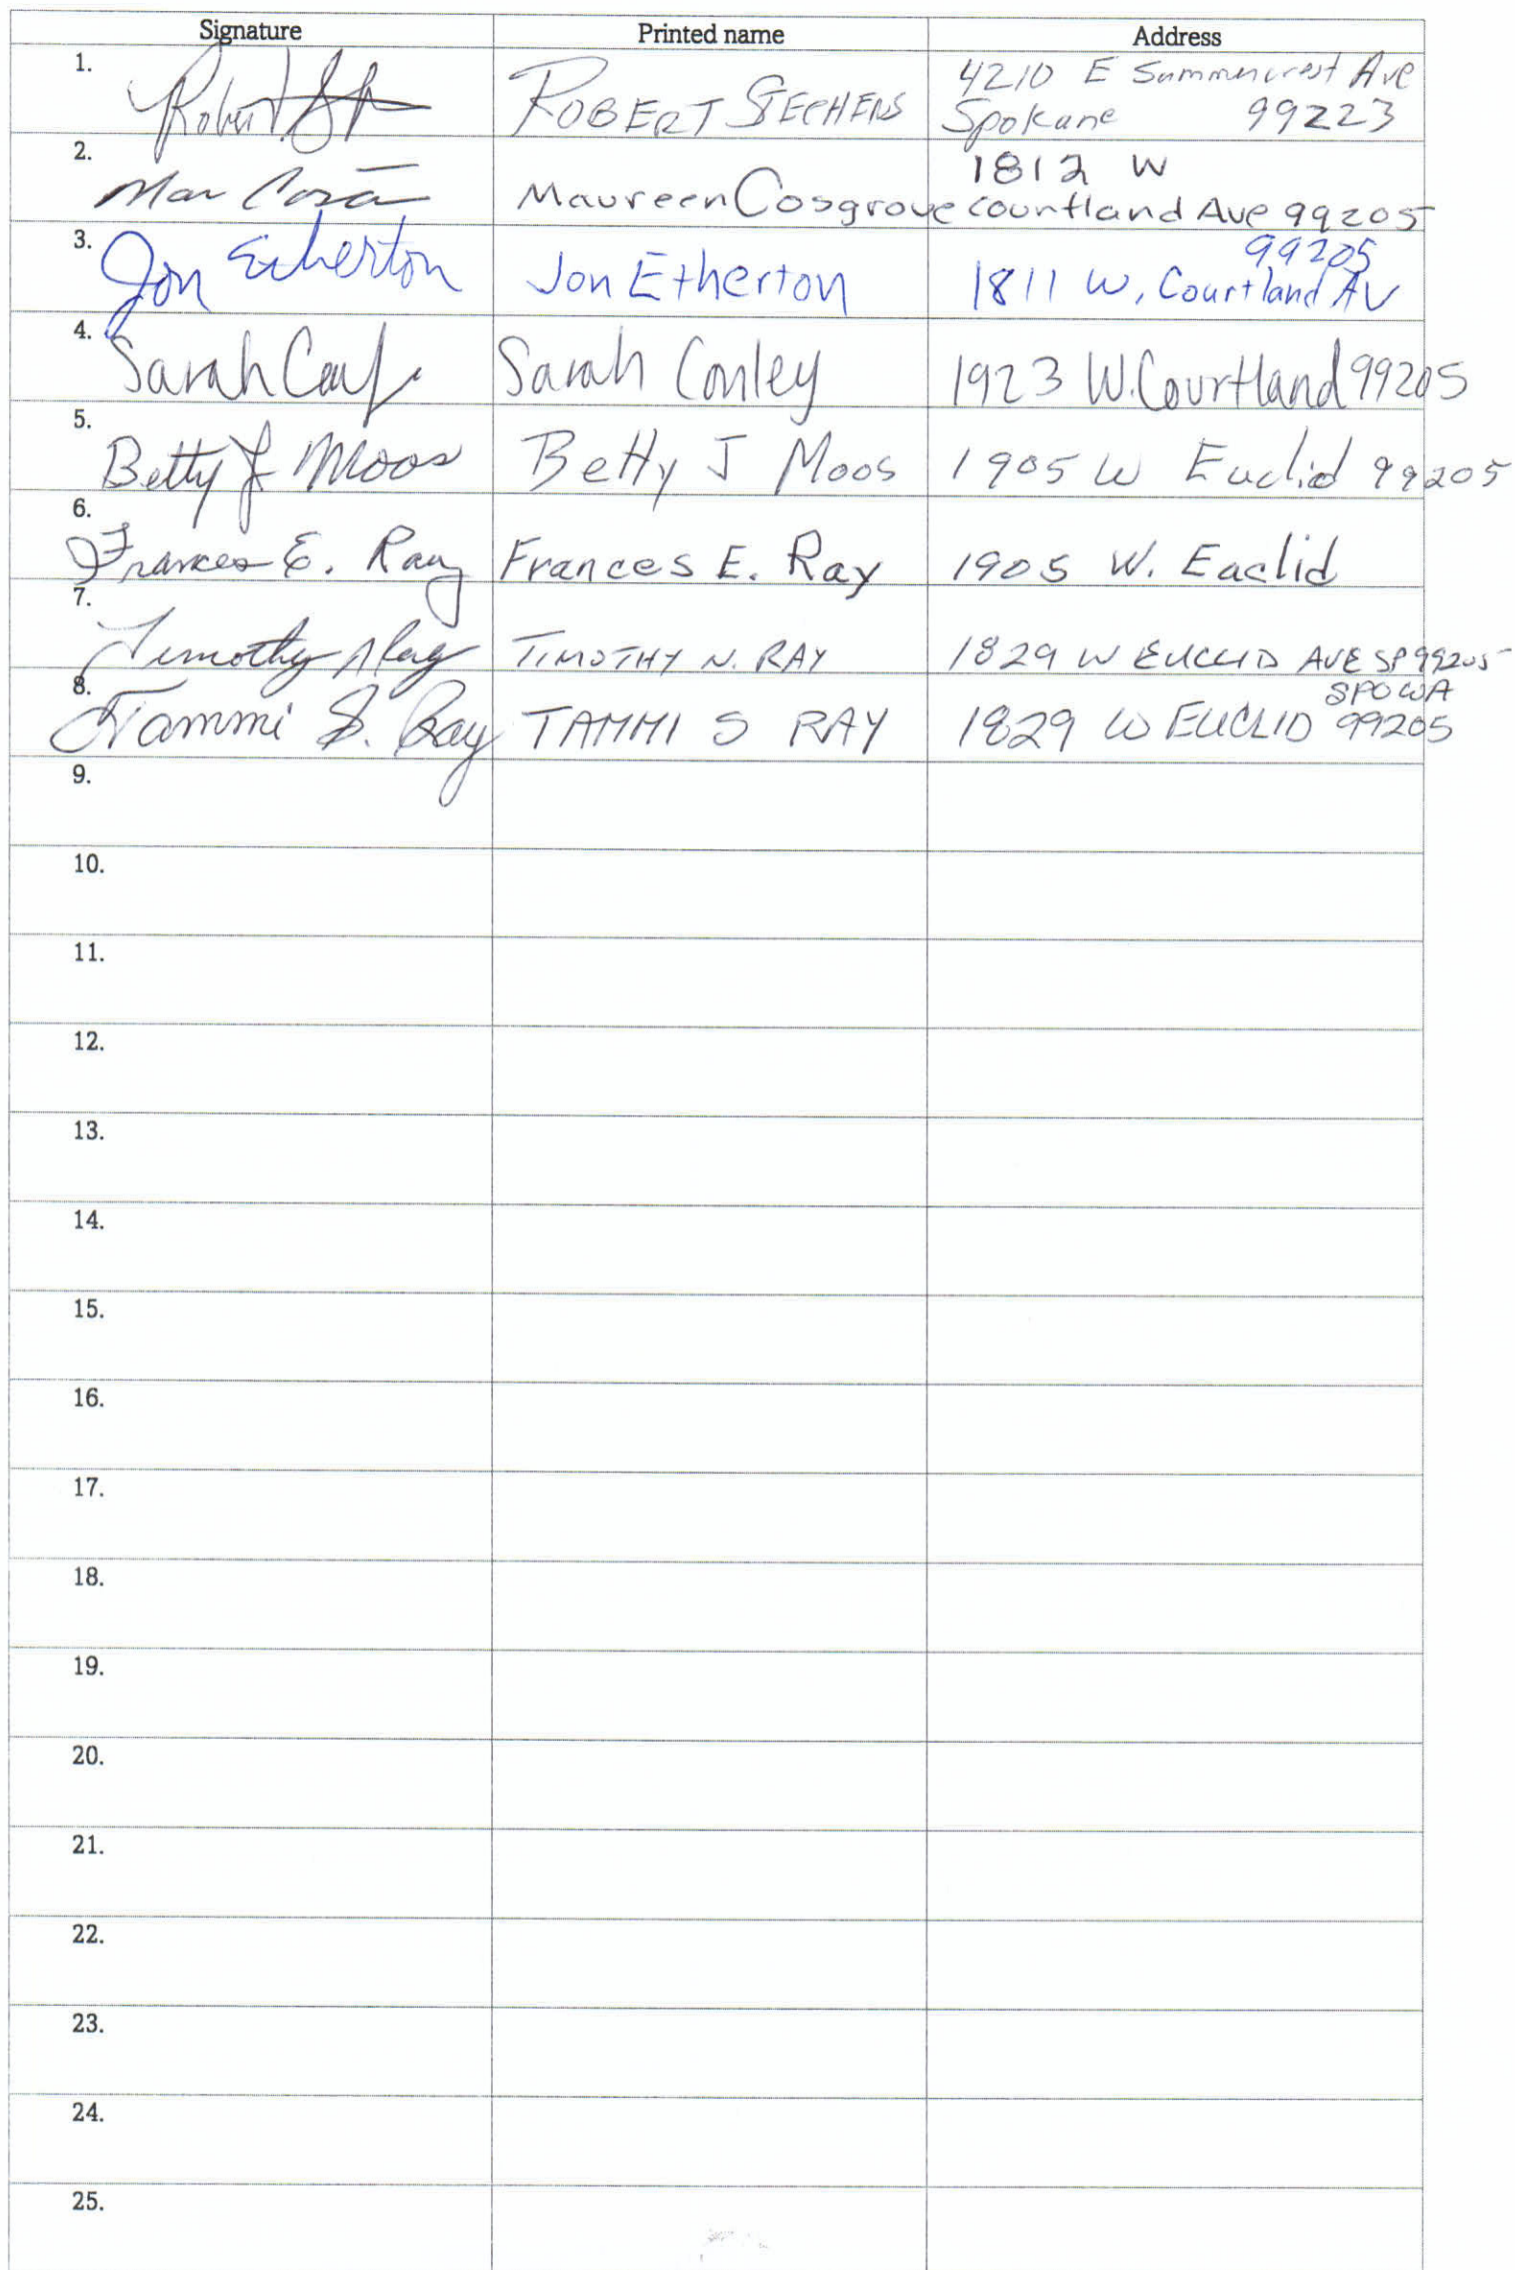 Signature Printed name Address
1. Robert ROBERT 4210 E Summercrest Ave
Spokane 99223
2. Maureen Cosgrove 1812 W
Courtland Ave 99205
3. Jon Etherton Jon Etherton 99205
1811 W. Courtland AV
4. Sarah Sarah Conley 1923 W. Courtland 99205
5. Betty J Moos Betty J Moos 1905 W Euclid 99205
6. Frances E. Ray Frances E. Ray 1905 W. Euclid
7. Timothy N Ray TIMOTHY N. RAY 1829 W EUCLID AVE SP 99205
8. Tammi S. Ray TAMMI S RAY SPO WA
1829 W EUCLID 99205
9.
10.
11.
12.
13.
14.
15.
16.
17.
18.
19.
20.
21.
22.
23.
24.
25.